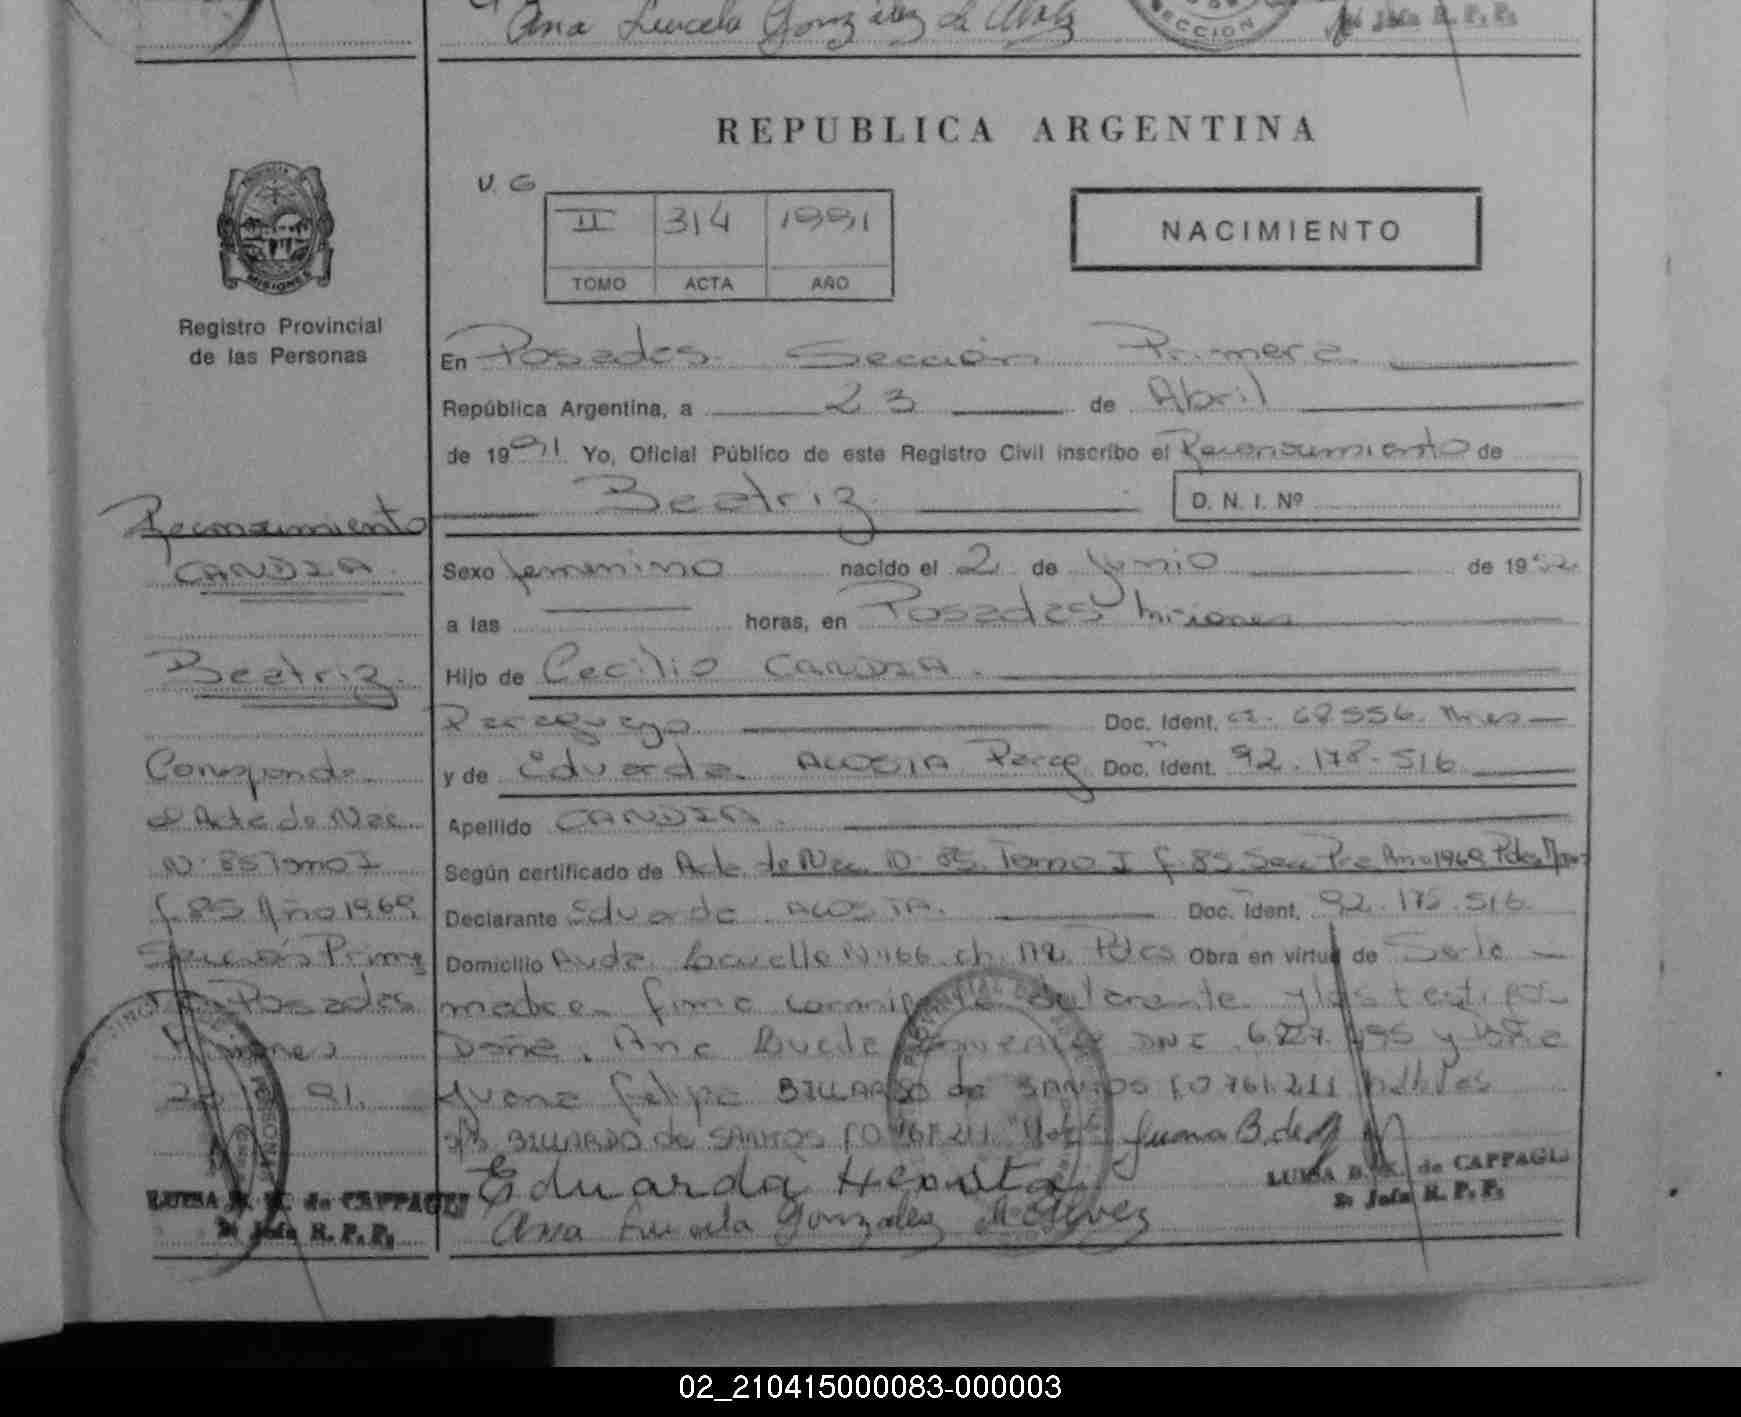 Ana Lucela González de
SECCION
2º Jefe R. P. P.
REPUBLICA ARGENTINA
V. G
II 314 1991
TOMO ACTA AÑO
NACIMIENTO
MISIONES
Registro Provincial
de las Personas
En Posadas Sección Primera
República Argentina, a 23 de Abril
de 1991 Yo, Oficial Público de este Registro Civil inscribo el Reconocimiento de
Beatriz D. N. I. Nº
Reconocimiento
CANDIA
Beatriz.
Corresponde
al Acta de Nac.
Nº 85 Tomo I
f. 85 Año 1969
Sección Prim
Posadas
Misiones
91.
LUISA de CAPPAGLI
2º Jefe R. P. P.
Sexo femenino nacido el 2 de Junio de 1952
a las horas, en Posadas Misiones
Hijo de Cecilio CANDIA.
Paraguayo Doc. Ident. CI. 68556. Mnes
y de Eduarda ACOSTA Parag Doc. Ident. 92.178.516
Apellido CANDIA.
Según certificado de Acta de Nac. Nº 85 Tomo I f. 85 Secc Pra Año 1969 Pdas
Declarante Eduarda ACOSTA. Doc. Ident. 92.178.516
Domicilio Avda. Lavalle Nº 166 ch. 112 Pdas Obra en virtud de Ser la
madre firma declarante y los testigos
Doña Ana DNI 6.827. y Doña
Juana Felipa BILLARDO de SANTOS hábiles
BILLARDO de SANTOS Juana B. de
Eduarda Acosta
Ana González
LUISA de CAPPAGLI
2º Jefe R. P. P.
02_210415000083-000003